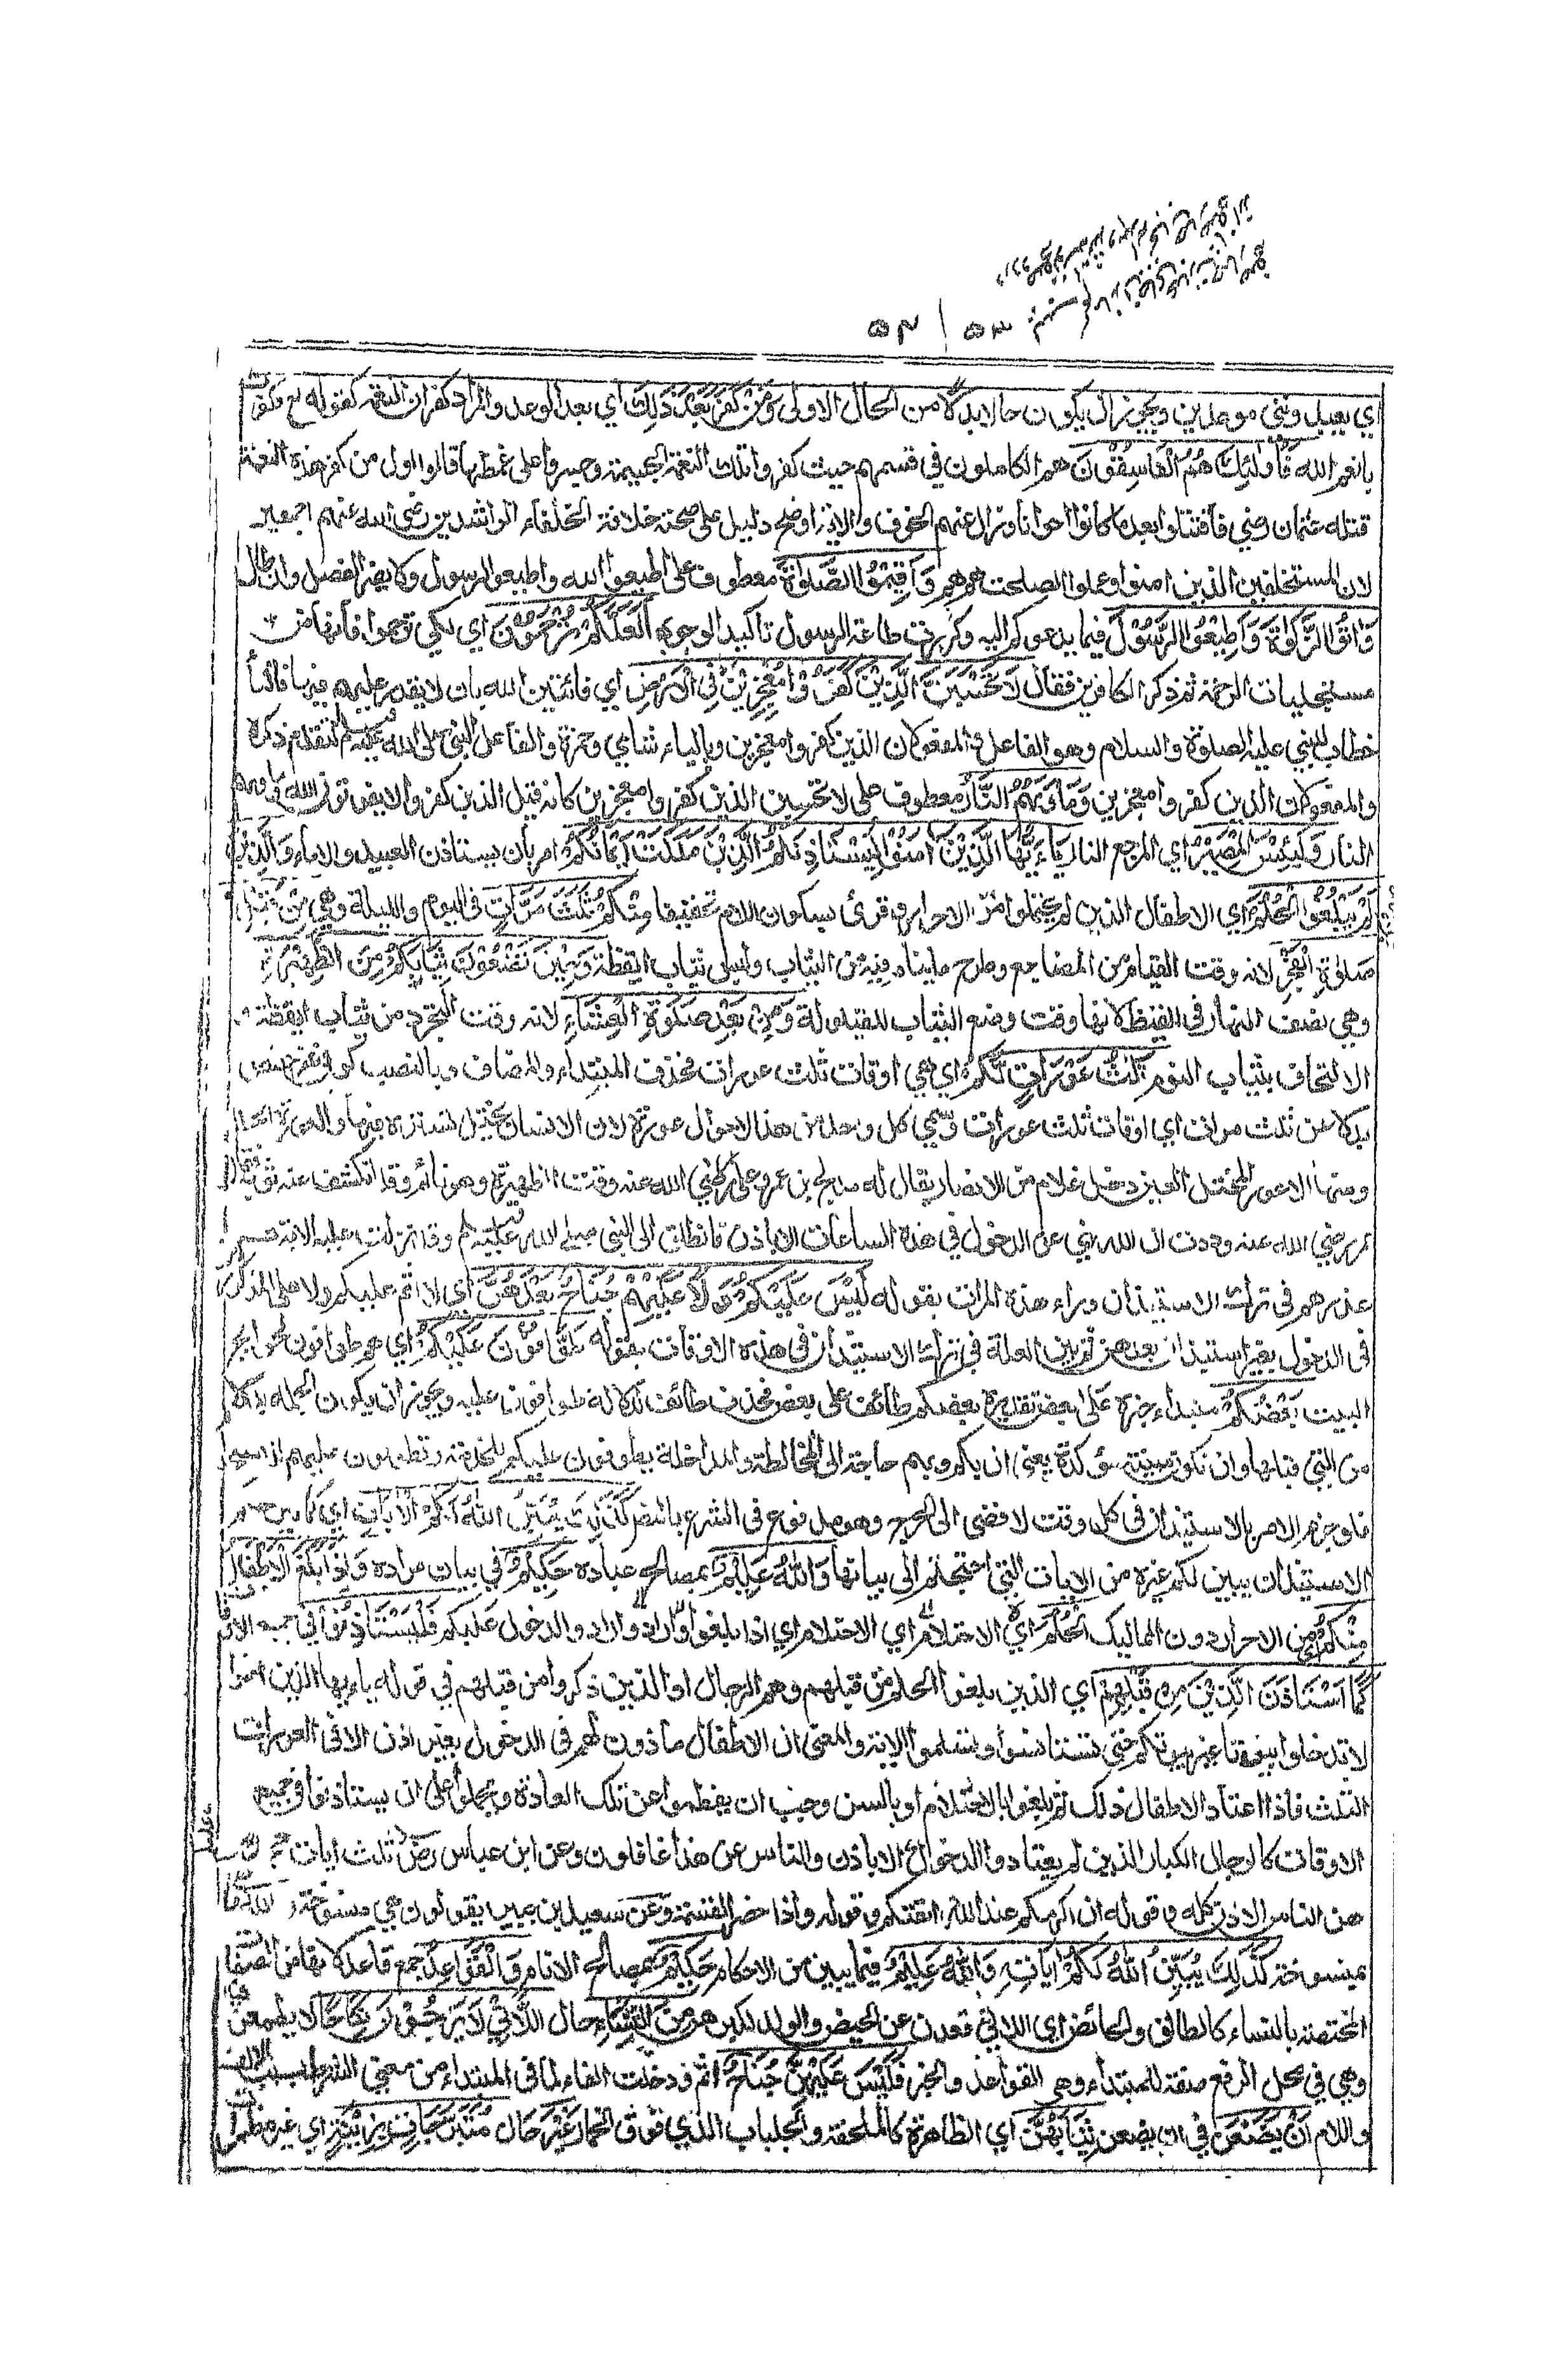 ٥٣ / ٥٣
اي يعبدونني موحدين ويجوز ان يكون حالا بدلا من الحال الاولى وَمَنْ كَفَرَ بَعْدَ ذٰلِكَ اي بعد الوعد والمراد كفران النعمة كقوله تع فكفرت
بانعم الله فَأُولٰئِكَ هُمُ الْفَاسِقُوْنَ هم الكاملون في فسقهم حيث كفروا تلك النعمة الجسيمة وجسروا على غمطها قالوا اول من كفر هذه النعمة
قتلة عثمان رضي فاقتتلوا بعد ما كانوا اخوانا وزال عنهم الخوف والاية اوضح دليل على صحة خلافة الخلفاء الراشدين رضي الله عنهم اجمعين
لان المستخلفين الذين امنوا وعملوا الصلحت هم هم وَاَقِيْمُوا الصَّلٰوةَ معطوف على اطيعوا الله واطيعوا الرسول ولا يضر الفصل وان طال
وَاٰتُوا الزَّكٰوةَ وَاَطِيْعُوا الرَّسُوْلَ فيما يدعوكم اليه وكررت طاعة الرسول تاكيدا لوجوبه لَعَلَّكُمْ تُرْحَمُوْنَ اي لكي ترحموا فانها من
مستجلبات الرحمة ثم ذكر الكافرين فقال لَا تَحْسَبَنَّ الَّذِيْنَ كَفَرُوْا مُعْجِزِيْنَ فِي الْاَرْضِ اي فائتين الله بان لا يقدر عليهم فيها فالتاء
خطاب للنبي عليه الصلوة والسلام وهو الفاعل والمفعولان الذين كفروا معجزين وبالياء شامي وحمزة والفاعل النبي صلى الله عليه وسلم لتقدم ذكره
والمفعولان الذين كفروا معجزين وَمَأْوٰىهُمُ النَّارُ معطوف على لا تحسبن الذين كفروا معجزين كانه قيل الذين كفروا لا يفوتون الله ومأوىهم
النار وَلَبِئْسَ الْمَصِيْرُ اي المرجع النار يٰاَيُّهَا الَّذِيْنَ اٰمَنُوْا لِيَسْتَأْذِنْكُمُ الَّذِيْنَ مَلَكَتْ اَيْمَانُكُمْ امر بان يستاذن العبيد والاماء وَالَّذِيْنَ
لَمْ يَبْلُغُوا الْحُلُمَ اي الاطفال الذين لم يحتلموا من الاحرار وقرئ بسكون اللام تخفيفا مِنْكُمْ ثَلٰثَ مَرَّاتٍ في اليوم والليلة وهي مِنْ قَبْلِ
صَلٰوةِ الْفَجْرِ لانه وقت القيام من المضاجع وطرح ما ينام فيه من الثياب ولبس ثياب اليقظة وَحِيْنَ تَضَعُوْنَ ثِيَابَكُمْ مِنَ الظَّهِيْرَةِ
وهي نصف النهار في القيظ لانها وقت وضع الثياب للقيلولة وَمِنْ بَعْدِ صَلٰوةِ الْعِشَاءِ لانه وقت التجرد من ثياب اليقظة و
الالتحاف بثياب النوم ثَلٰثُ عَوْرَاتٍ لَّكُمْ اي هي اوقات ثلث عورات فحذف المبتداء والمضاف وبالنصب كوفي غير حفص
بدلا عن ثلث مرات اي اوقات ثلث عورات وسمي كل واحد من هذه الاحوال عورة لان الانسان يختل تستره فيها والعورة الخلل
ومنها الاعور المختل العين دخل غلام من الانصار يقال له مدلج بن عمرو على عمر رضي الله عنه وقت الظهيرة وهو نائم وقد انكشف عنه ثوبه فقال
عمر رضي الله عنه وددت ان الله نهي عن الدخول في هذه الساعات الا باذن فانطلق الى النبي صلى الله عليه وسلم وقد نزلت عليه الاية ثم
عذرهم في ترك الاستيذان وراء هذه المرات بقوله لَيْسَ عَلَيْكُمْ وَلَا عَلَيْهِمْ جُنَاحٌ بَعْدَهُنَّ اي لا اثم عليكم ولا على المذكورين
في الدخول بغير استيذان بعدهن ثم بين العلة في ترك الاستيذان في هذه الاوقات بقوله طَوَّافُوْنَ عَلَيْكُمْ اي هم طوافون لحوائج
البيت بَعْضُكُمْ مبتداء خبره عَلٰى بعض تقديره بعضكم طائف على بعض فحذف طائف لدلالة طوافون عليه ويجوز ان يكون الجملة بدلا
من التي قبلها وان تكون مبينة مؤكدة يعني ان بكم وبهم حاجة الى المخالطة والمداخلة يطوفون عليكم للخدمة وتطوفون عليهم للاستخدام
فلو جزم الامر بالاستيذان في كل وقت لافضى الى الحرج وهو مدفوع في الشرع بالنص كَذٰلِكَ يُبَيِّنُ اللّٰهُ لَكُمُ الْاٰيَاتِ اي كما بين حكم
الاستيذان يبين لكم غيره من الايات التي احتجتم الى بيانها وَاللّٰهُ عَلِيْمٌ بمصالح عباده حَكِيْمٌ في بيان مراده وَاِذَا بَلَغَ الْاَطْفَالُ
مِنْكُمُ من الاحرار دون المماليك الْحُلُمَ اي الاحتلام اي اذا بلغوا وارادوا الدخول عليكم فَلْيَسْتَأْذِنُوْا في جميع الاوقات
كَمَا اسْتَأْذَنَ الَّذِيْنَ مِنْ قَبْلِهِمْ اي الذين بلغوا الحلم من قبلهم وهم الرجال او الذين ذكروا من قبلهم في قوله يايها الذين امنوا
لا تدخلوا بيوتا غير بيوتكم حتى تستانسوا وتسلموا الاية والمعنى ان الاطفال ماذون لهم في الدخول بغير اذن الا في العورات
الثلث فاذا اعتاد الاطفال ذلك ثم بلغوا بالاحتلام او بالسن وجب ان يفطموا عن تلك العادة ويحملوا على ان يستاذنوا في جميع
الاوقات كالرجال الكبار الذين لم يعتادوا الدخول الا باذن والناس عن هذا غافلون وعن ابن عباس رض ثلث ايات جحدهن
الناس الاذن كله وقوله ان اكرمكم عند الله اتقىكم وقوله واذا حضر القسمة وعن سعيد بن جبير يقولون هي منسوخة والله ما هي
بمنسوخة كَذٰلِكَ يُبَيِّنُ اللّٰهُ لَكُمْ اٰيَاتِهِ وَاللّٰهُ عَلِيْمٌ فيما يبين من الاحكام حَكِيْمٌ بمصالح الانام وَالْقَوَاعِدُ جمع قاعد لانها من الصفات
المختصة بالنساء كالطالق والحائض اي اللاتي قعدن عن الحيض والولد لكبرهن مِنَ النِّسَاءِ حال اللَّاتِيْ لَا يَرْجُوْنَ نِكَاحًا لا يطمعن فيه
وهي في محل الرفع صفة للمبتداء وهي القواعد والخبر فَلَيْسَ عَلَيْهِنَّ جُنَاحٌ اثم ودخلت الفاء لما في المبتداء من معنى الشرط بسبب الالف
واللام اَنْ يَّضَعْنَ في ان يضعن ثِيَابَهُنَّ اي الظاهرة كالملحفة والجلباب الذي فوق الخمار غَيْرَ حال مُتَبَرِّجَاتٍ بِزِيْنَةٍ اي غير مظهرات